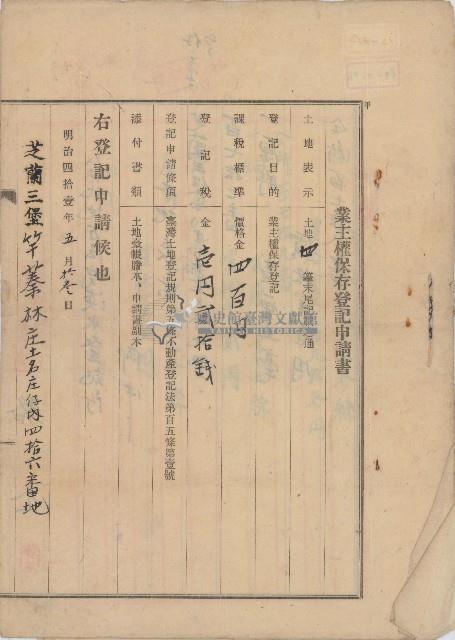 業主權保存登記申請書
土地表示 土地四筆末尾記載ノ通
登記目的 業主權保存登記
課稅標準 價格金四百円
登記稅 金壱円弐拾銭
登記申請條項 臺灣土地登記規則第五條不動產登記法第百五條第壹號
添付書類 土地臺帳謄本、申請書副本
右登記申請候也
明治四拾壹年五月拾壱日
芝蘭三堡竿蓁林庄土名庄仔內四拾六番地